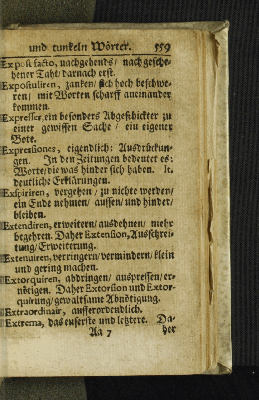 und tunkeln Wörter. 559
Ex post facto, nachgehends / nachgesche-
hener Taht / darnach erst.
Expostuliren, zanken / sich hoch beschwe-
ren / mit Worten scharff aneinander
kommen.
Expresser, ein besonders Abgeschickter zu
einer gewissen Sache / ein eigener
Bote.
Expressiones, eigendlich: Ausdrückun-
gen. In den Zeitungen bedeutet es:
Worte / die was hinder sich haben. It.
deutliche Erklärungen.
Exspiriren, vergehen / zu nichte werden /
ein Ende nehmen / aussen / und hinder /
bleiben.
Extendiren, erweitern / ausdehnen / mehr
begehren. Daher Extension, Ausschrei-
tung / Erweiterung.
Extenuiren, verringern / vermindern / klein
und gering machen.
Extorquiren, abdringen / auspressen / er-
nötigen. Daher Extorsion und Extor-
quirung / gewaltsame Abnötigung.
Extraordinair, ausserordendlich.
Extrema, das euserste und letztere. Da-
Aa 7 her